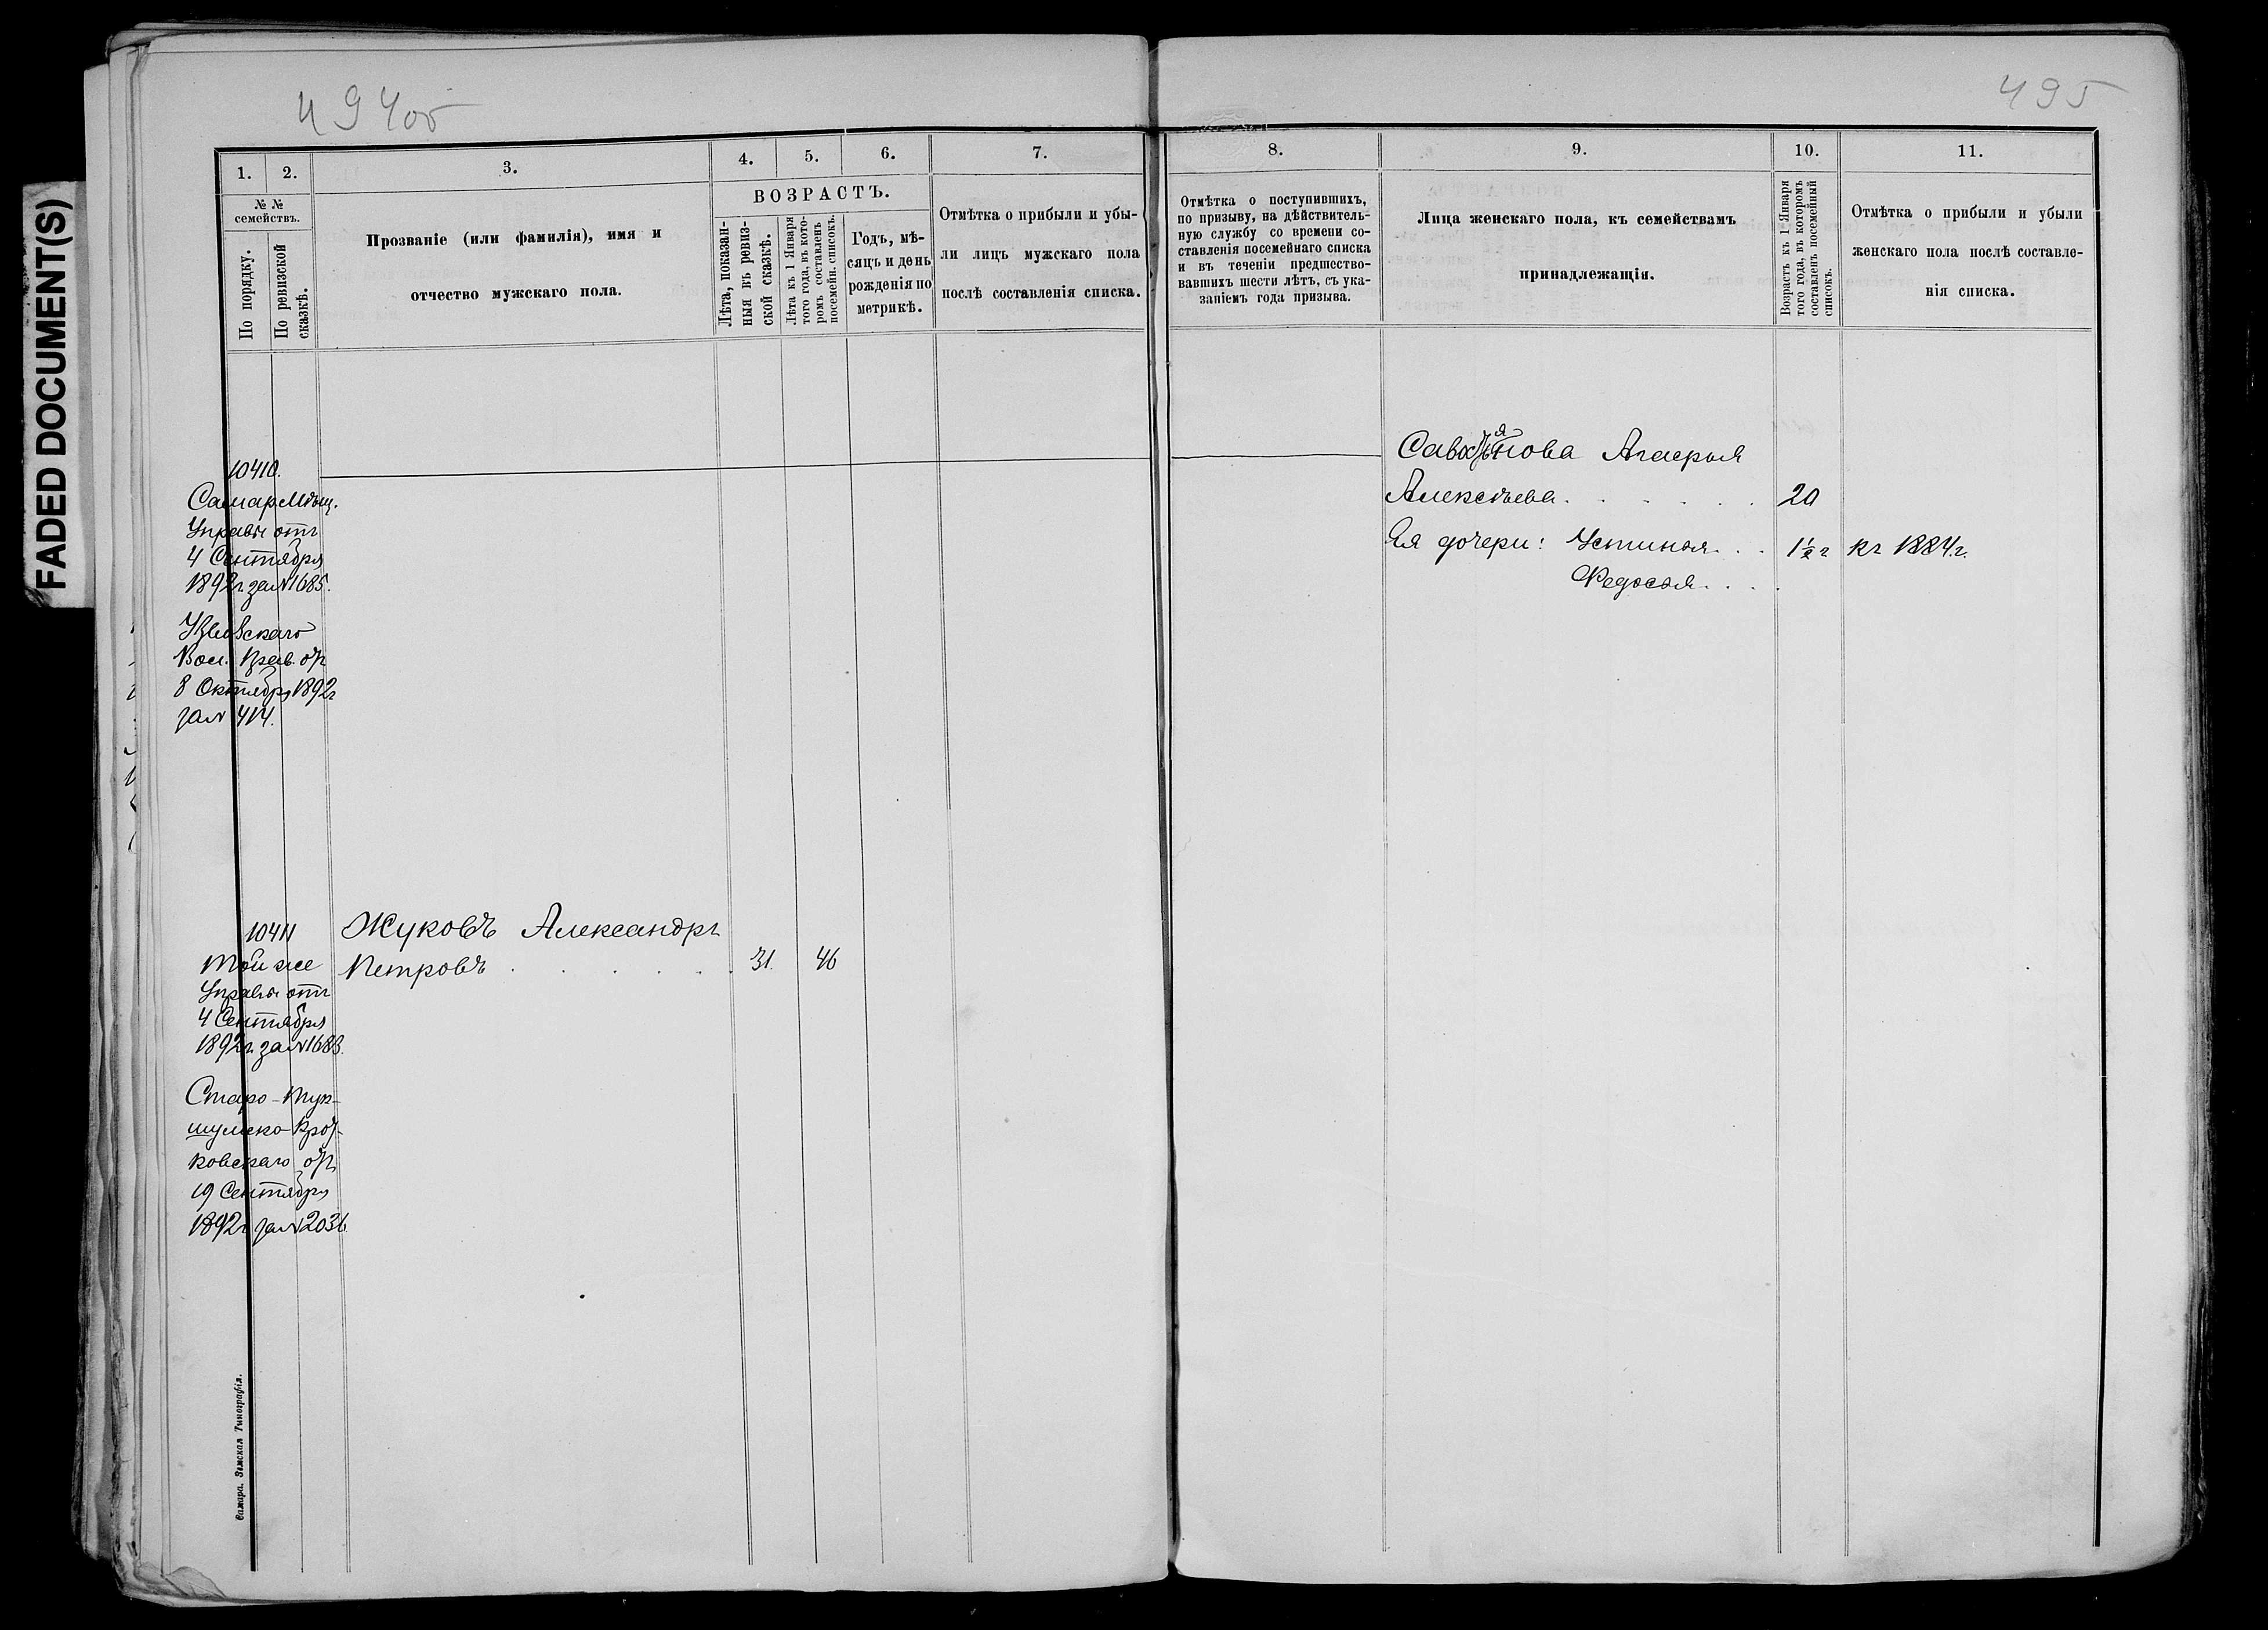 FADED DOCUMENT(S)
494об
1. 2. 3. 4. 5. 6. 7.
№ №
семействъ.
По порядку.
По ревизской
сказкѣ.
Прозваніе (или фамилія), имя и
отчество мужскаго пола.
ВОЗРАСТЪ.
Лѣта, показан-
ныя въ ревиз-
ской сказкѣ.
Лѣта къ 1 Января
того года, въ кото-
ромъ составленъ
посемейн. списокъ.
Годъ, мѣ-
сяцъ и день
рожденія по
метрикѣ.
Отмѣтка о прибыли и убы-
ли лицъ мужскаго пола
послѣ составленія списка.
10410.
Самар. Мѣщ.
Управы отъ
4 Сентября
1892г. за №1685.
Вол. Прав. от
8 Октября 1892г
за № 414.
10411
Жуковъ Александръ
Той же
Петровъ 31. 46
Управы отъ
4 Сентября
1892г. за №1688.
Старо-
ковскаго от
19 Сентября
1892г за №2036
Самара. Земская Типографія.
495
8. 9. 10. 11.
Отмѣтка о поступившихъ,
по призыву, на дѣйствитель-
ную службу со времени со-
ставленія посемейнаго списка
и въ теченіи предшество-
вавшихъ шести лѣтъ, съ ука-
заніемъ года призыва.
Лица женскаго пола, къ семействамъ
принадлежащія.
Возрастъ къ 1 Января
того года, въ которомъ
составленъ посемейный
списокъ.
Отмѣтка о прибыли и убыли
женскаго пола послѣ составле-
нія списка.
Агафья
Алексѣева 20
Ея дочери: Устинья 1½ г къ 1884 г.
Федосья